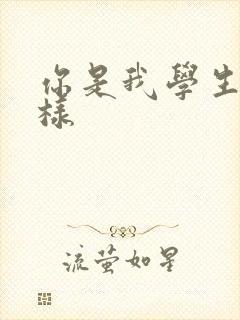 你是我學生
樣
流萤如星